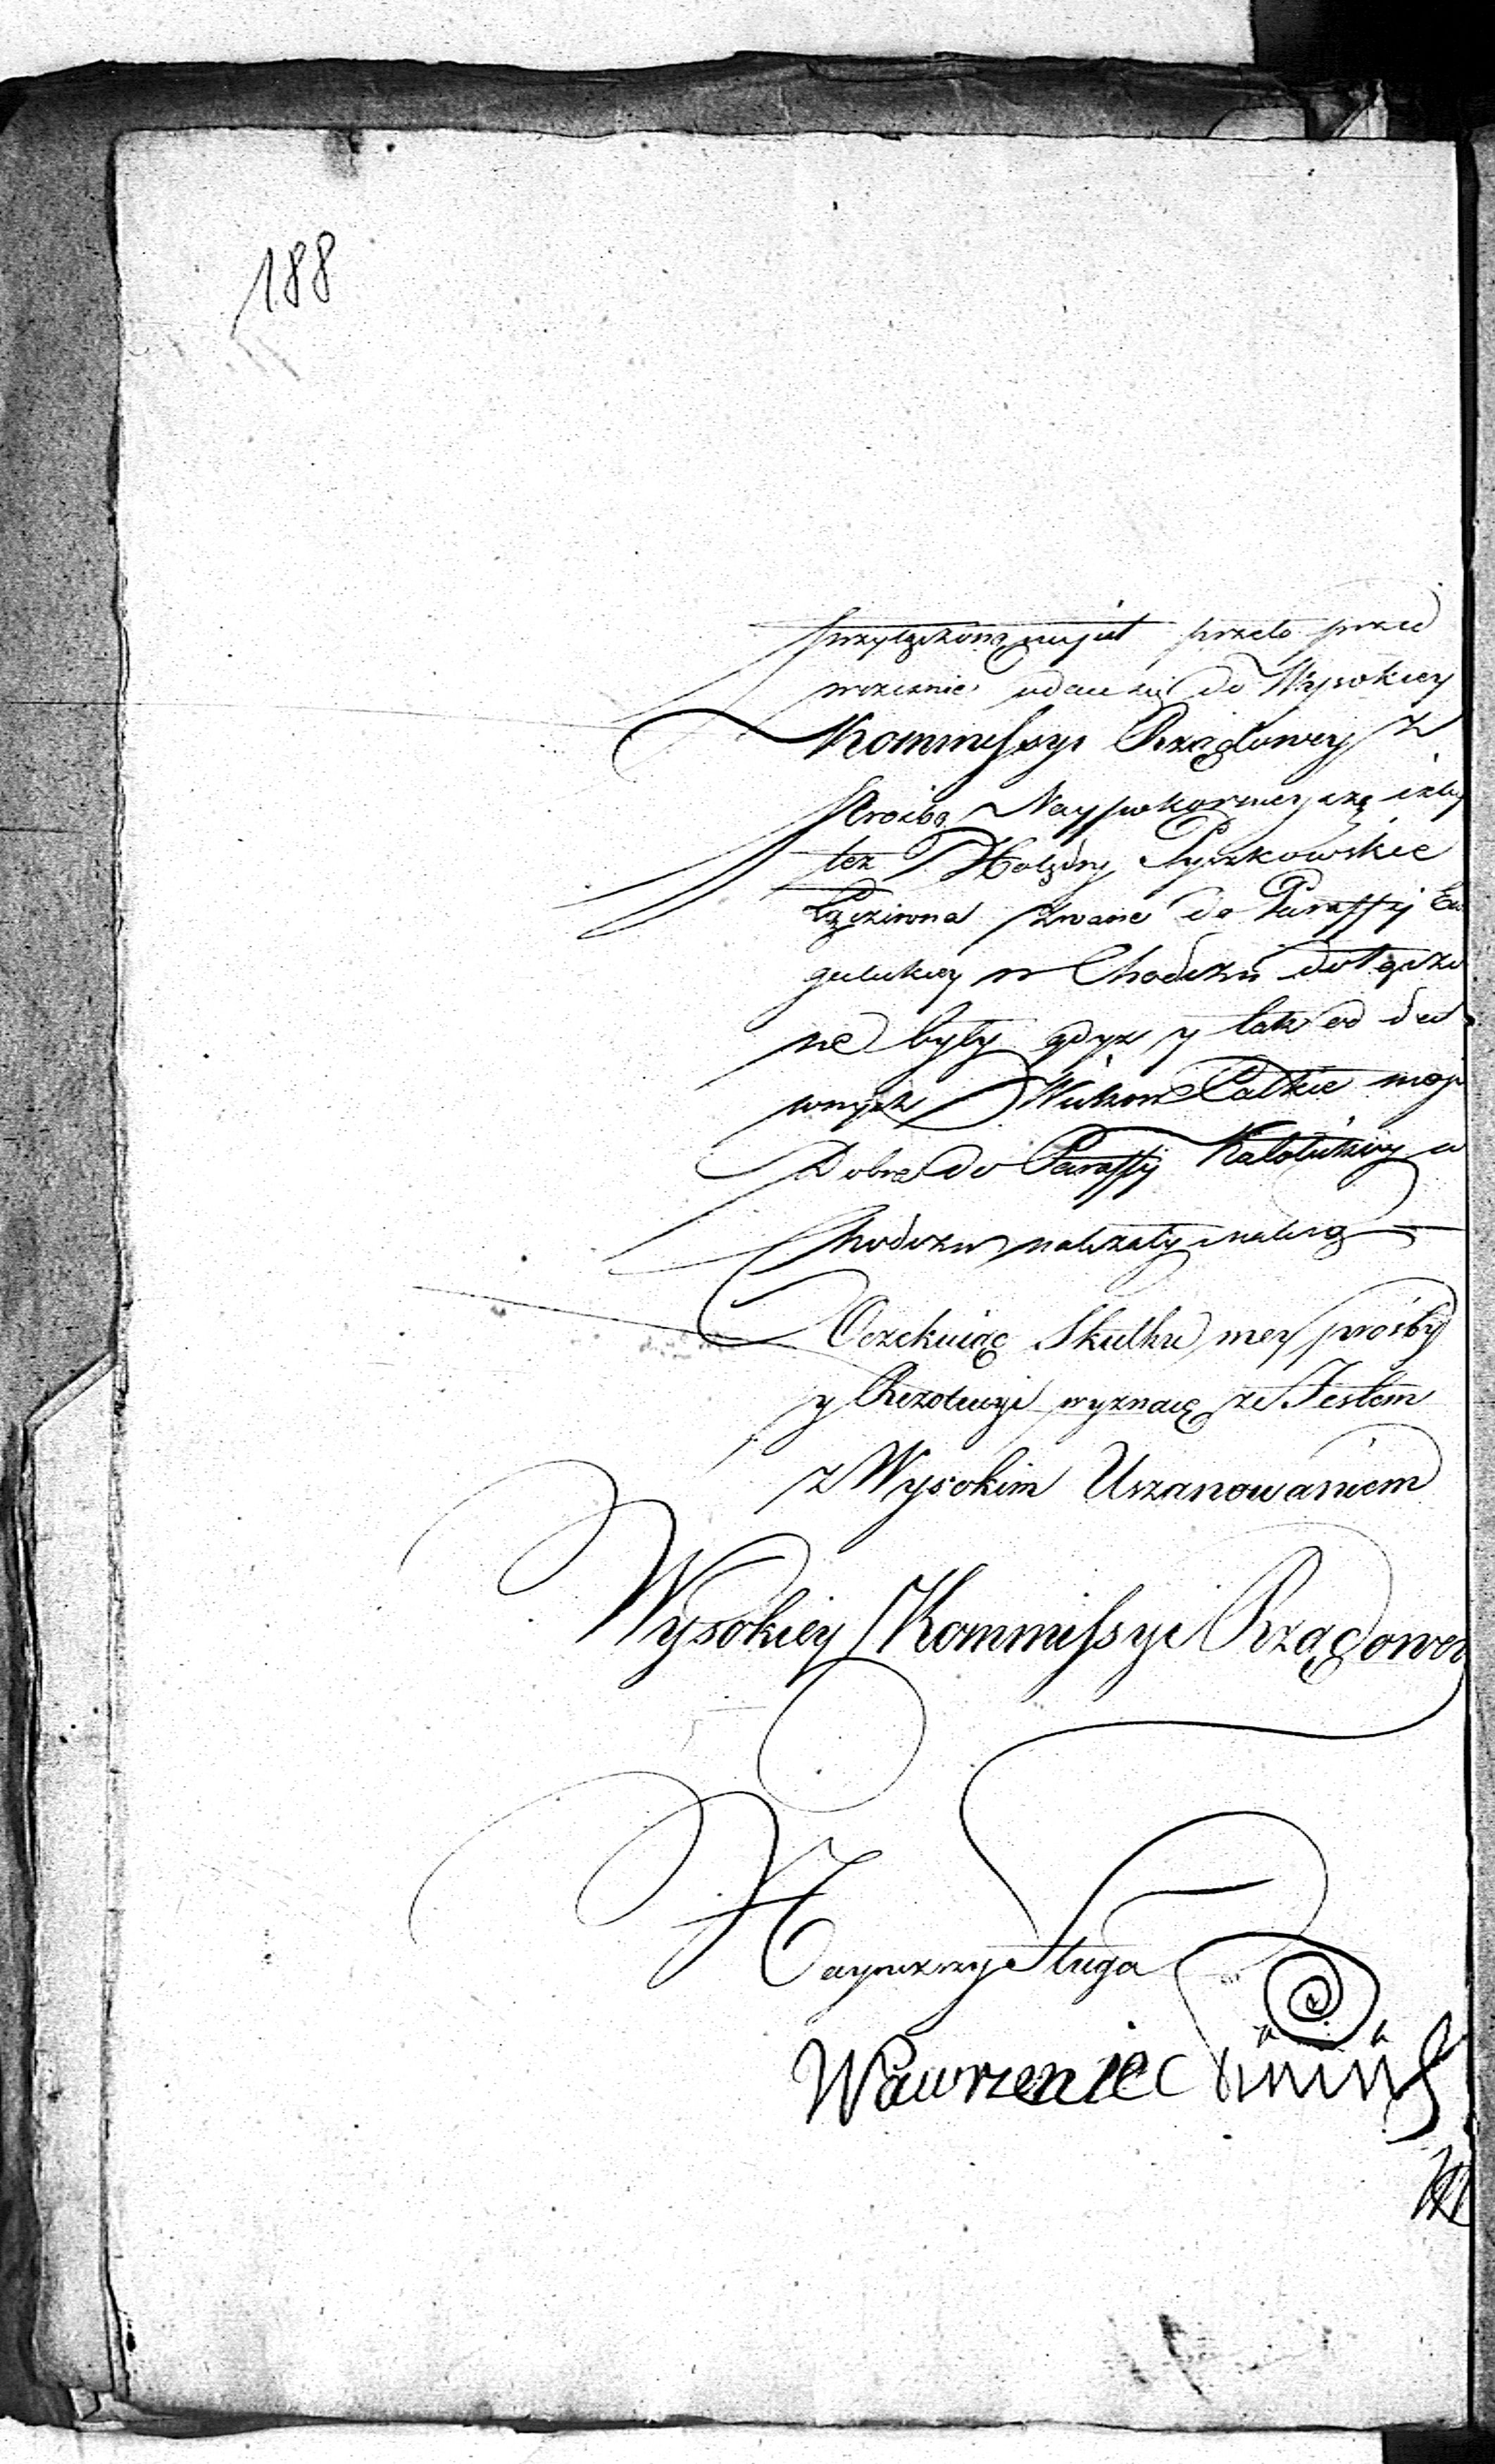 188
przyłączoną przeto przed
wcześnie udaie się do Wysokiey
Kommissyi Rządowey z
Prośbą Naypokornieyszą iżby
też Holędry Pyszkowskie
zwane do Paraffij Ewa
gelickiey w Chodczu dołączo
ne były gdyż y tak od da
wnych Wieków Całkie moje
Dobra do Paraffij Katolickiey w
Chodczu należały i należą
Oczekuiąc Skutku mey prośby
y Rezolucyi wyznaię że Jestem
z Wysokim Uszanowaniem
Wysokiey Kommissyi Rządowey
Nayniższy Sługa
Wawrzeniec